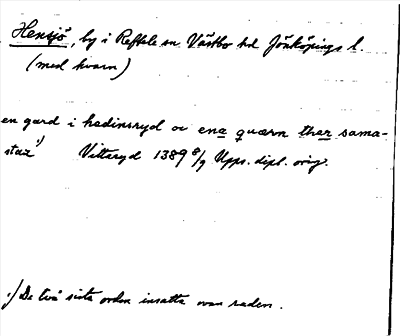 Hensjö, by i Reftele sn. Västbo hd Jönköpings l.
(med kvarn)
en gard i hedinsryd oc ena quærn thær sama-
staz 1) Vittaryd 1389 8/9 Upps. dipl. orig.
1) De två sista orden insatta ovan raden.